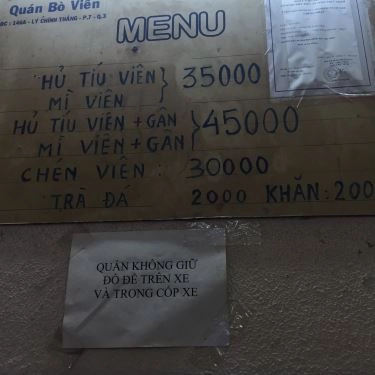 Quán Bò Viên
ĐC: 149A - LÝ CHÍNH THẮNG - P.7 - Q.3
MENU
HỦ TÍU VIÊN } 35000
MÌ VIÊN
HỦ TÍU VIÊN + GÂN } 45000
MÌ VIÊN + GÂN
CHÉN VIÊN : 30000
TRÀ ĐÁ 2000 KHĂN: 200
QUÁN KHÔNG GIỮ
ĐỒ ĐỂ TRÊN XE
VÀ TRONG CỐP XE